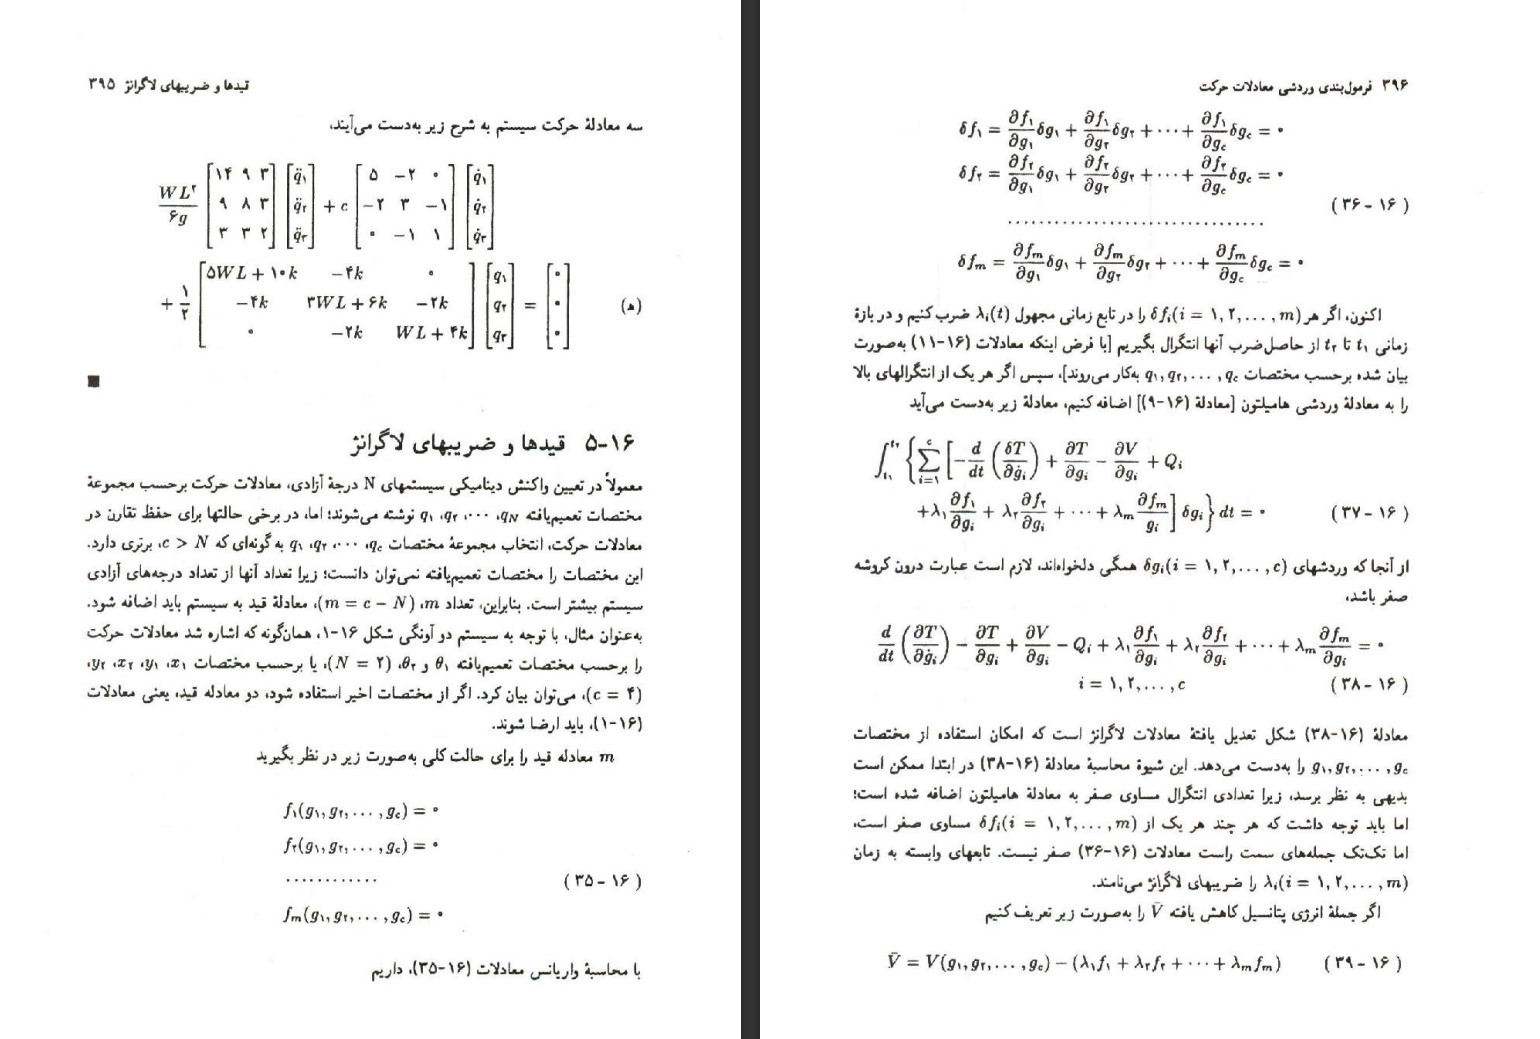 قیدها و ضریبهای لاگرانژ ۳۹۵
سه معادلهٔ حرکت سیستم به شرح زیر به‌دست می‌آیند،
WL²/۶g [۱۴ ۹ ۳; ۹ ۸ ۳; ۳ ۳ ۲] [q̈₁; q̈₂; q̈₃] + c [۵ −۲ ۰; −۲ ۳ −۱; ۰ −۱ ۱] [q̇₁; q̇₂; q̇₃]
+ ۱/۲ [۵WL + ۱۰k −۴k ۰; −۴k ۳WL + ۶k −۲k; ۰ −۲k WL + ۴k] [q₁; q₂; q₃] = [۰; ۰; ۰] (ه)
■
۵-۱۶ قیدها و ضریبهای لاگرانژ
معمولاً در تعیین واکنش دینامیکی سیستمهای N درجهٔ آزادی، معادلات حرکت برحسب مجموعهٔ
مختصات تعمیم‌یافته q₁، q₂، ⋯، q_N نوشته می‌شوند؛ اما، در برخی حالتها برای حفظ تقارن در
معادلات حرکت، انتخاب مجموعهٔ مختصات q₁، q₂، ⋯، q_c به گونه‌ای که c > N، برتری دارد.
این مختصات را مختصات تعمیم‌یافته نمی‌توان دانست؛ زیرا تعداد آنها از تعداد درجه‌های آزادی
سیستم بیشتر است. بنابراین، تعداد m، (m = c − N)، معادلهٔ قید به سیستم باید اضافه شود.
به‌عنوان مثال، با توجه به سیستم دو آونگی شکل ۱۶-۱، همان‌گونه که اشاره شد معادلات حرکت
را برحسب مختصات تعمیم‌یافته θ₁ و θ₂، (N = ۲)، یا برحسب مختصات x₁، y₁، x₂، y₂،
(c = ۴)، می‌توان بیان کرد. اگر از مختصات اخیر استفاده شود، دو معادله قید، یعنی معادلات
(۱۶-۱)، باید ارضا شوند.
m معادله قید را برای حالت کلی به‌صورت زیر در نظر بگیرید
f₁(g₁, g₂, ..., g_c) = ۰
f₂(g₁, g₂, ..., g_c) = ۰
............ (۱۶-۳۵)
f_m(g₁, g₂, ..., g_c) = ۰
با محاسبهٔ واریانس معادلات (۱۶-۳۵)، داریم
۳۹۶ فرمول‌بندی وردشی معادلات حرکت
δf₁ = ∂f₁/∂g₁ δg₁ + ∂f₁/∂g₂ δg₂ + ⋯ + ∂f₁/∂g_c δg_c = ۰
δf₂ = ∂f₂/∂g₁ δg₁ + ∂f₂/∂g₂ δg₂ + ⋯ + ∂f₂/∂g_c δg_c = ۰
................................ (۱۶-۳۶)
δf_m = ∂f_m/∂g₁ δg₁ + ∂f_m/∂g₂ δg₂ + ⋯ + ∂f_m/∂g_c δg_c = ۰
اکنون، اگر هر δf_i(i = ۱, ۲, ..., m) را در تابع زمانی مجهول λ_i(t) ضرب کنیم و در بازهٔ
زمانی t₁ تا t₂ از حاصل‌ضرب آنها انتگرال بگیریم [با فرض اینکه معادلات (۱۶-۱۱) به‌صورت
بیان شده برحسب مختصات q₁, q₂, ..., q_c به‌کار می‌روند]، سپس اگر هر یک از انتگرالهای بالا
را به معادلهٔ وردشی هامیلتون [معادلهٔ (۱۶-۹)] اضافه کنیم، معادلهٔ زیر به‌دست می‌آید
∫_{t₁}^{t₂} { Σ_{i=۱}^{c} [ −d/dt (δT/∂ġ_i) + ∂T/∂g_i − ∂V/∂g_i + Q_i
+λ₁ ∂f₁/∂g_i + λ₂ ∂f₂/∂g_i + ⋯ + λ_m ∂f_m/g_i ] δg_i } dt = ۰ (۱۶-۳۷)
از آنجا که وردشهای δg_i(i = ۱, ۲, ..., c) همگی دلخواه‌اند، لازم است عبارت درون کروشه
صفر باشد،
d/dt (∂T/∂ġ_i) − ∂T/∂g_i + ∂V/∂g_i − Q_i + λ₁ ∂f₁/∂g_i + λ₂ ∂f₂/∂g_i + ⋯ + λ_m ∂f_m/∂g_i = ۰
i = ۱, ۲, ..., c (۱۶-۳۸)
معادلهٔ (۱۶-۳۸) شکل تعدیل یافتهٔ معادلات لاگرانژ است که امکان استفاده از مختصات
g₁, g₂, ..., g_c را به‌دست می‌دهد. این شیوهٔ محاسبهٔ معادلهٔ (۱۶-۳۸) در ابتدا ممکن است
بدیهی به نظر برسد، زیرا تعدادی انتگرال مساوی صفر به معادلهٔ هامیلتون اضافه شده است؛
اما باید توجه داشت که هر چند هر یک از δf_i(i = ۱, ۲, ..., m) مساوی صفر است،
اما تک‌تک جمله‌های سمت راست معادلات (۱۶-۳۶) صفر نیست. تابعهای وابسته به زمان
λ_i(i = ۱, ۲, ..., m) را ضریبهای لاگرانژ می‌نامند.
اگر جملهٔ انرژی پتانسیل کاهش یافته V̄ را به‌صورت زیر تعریف کنیم
V̄ = V(g₁, g₂, ..., g_c) − (λ₁f₁ + λ₂f₂ + ⋯ + λ_m f_m) (۱۶-۳۹)